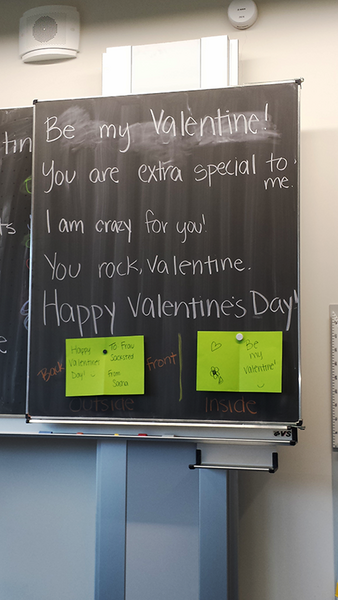 Be my Valentine!
You are extra special to
me.
I am crazy for you!
You rock, Valentine.
Happy Valentine's Day!
Back
Happy
Valentines
Day!
To Frau
From
Front
Be
my
Valentine!
Outside
Inside